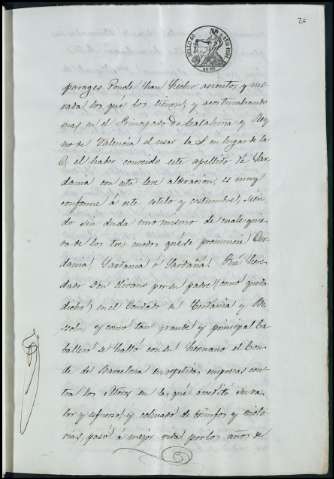 parages donde han hecho asientos y mu-
sada los que los tienen, y acostumbrando
mas en el Principado de Cataluña y Rey-
no de Valencia el usar la
el haber convenido este apellido de Cer-
dania con esta leve alteracion, es muy
conforme á este estilo y costumbre, sien-
do sin duda uno mismo de cualequie-
ra de los tres modos que se pronuncie, Cer-
dania, Sardania ó Sardaña. Fue here-
dado Don por su padre (como queda
dicho) en el Condado de Cerdania y Be-
salú, y como tan grande y principal Ca-
ballero se halló con su hermano el Conde
de Barcelona en repetidas empresas con-
tra los Moros en las que acreditó su va-
lor y esfuerzo, y colmado de triunfos y victo-
rias, pasó á mejor vida por los años de